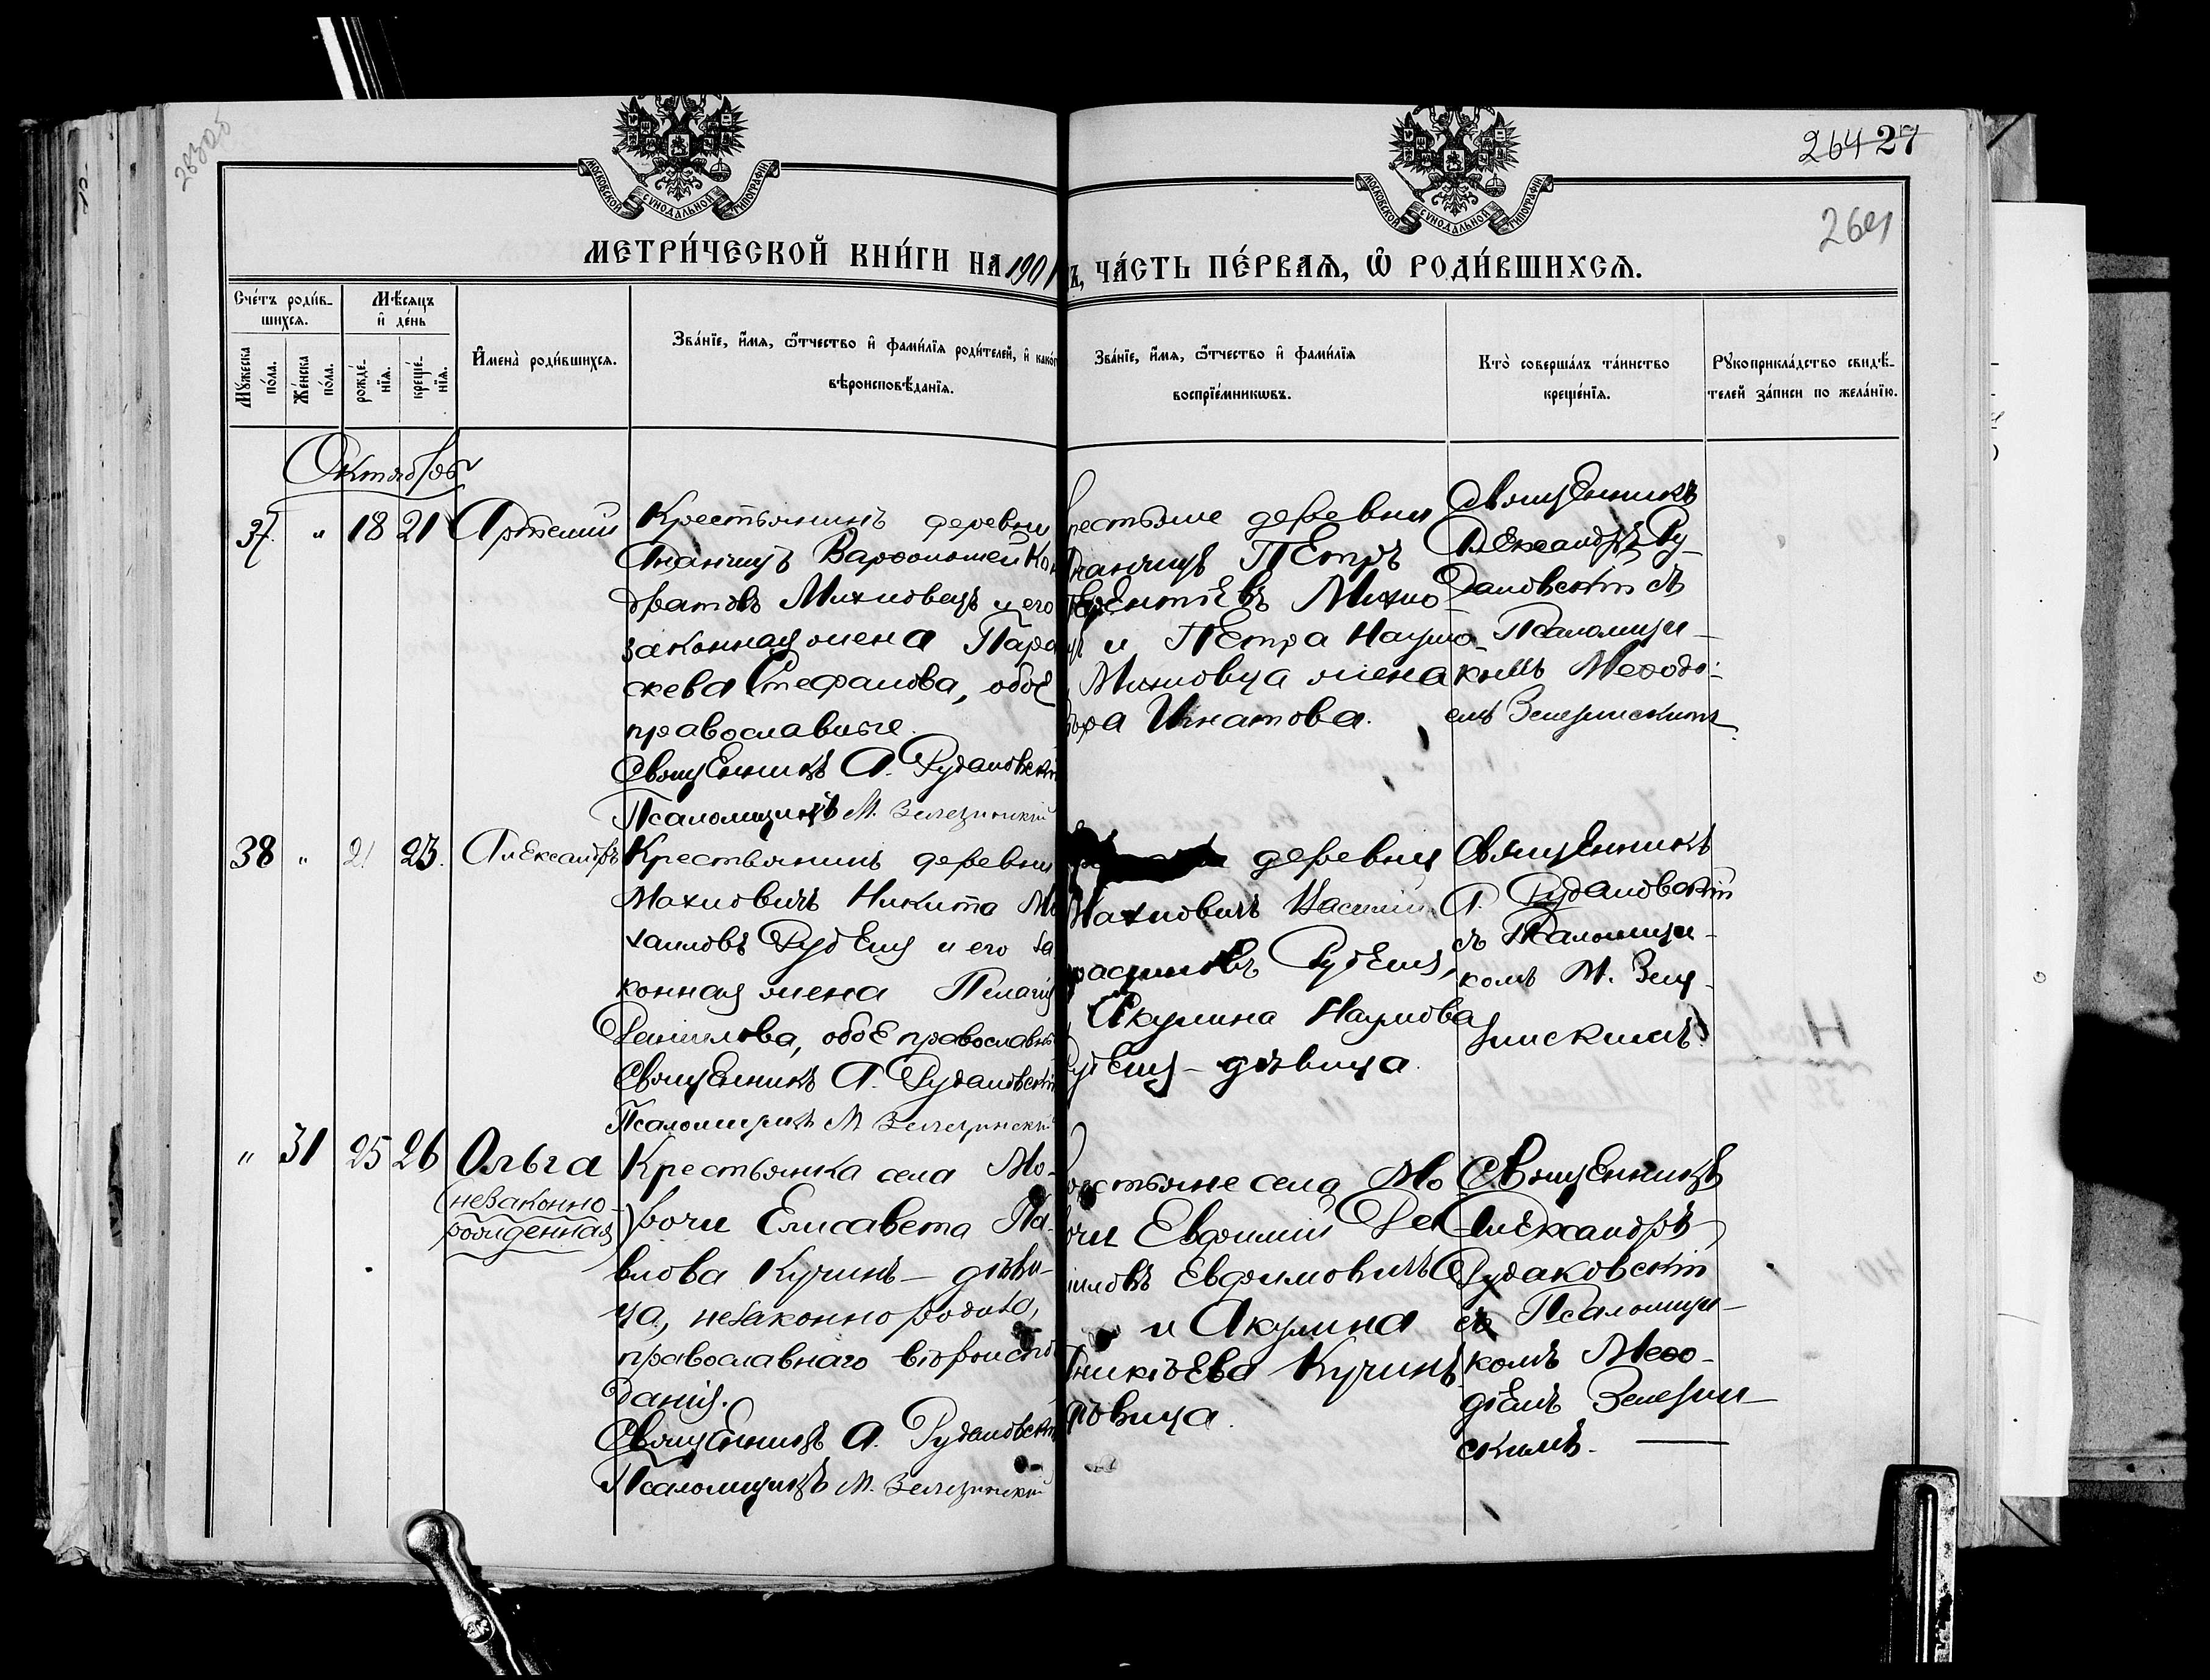 264 27
264
МОСКОВСКОЙ СѴНОДАЛЬНОЙ ТИПОГРАФІИ
МОСКОВСКОЙ СѴНОДАЛЬНОЙ ТИПОГРАФІИ
МЕТРИ́ЧЕСКОЙ КНИ́ГИ НА 1901
Ъ, ЧА́СТЬ ПЕ́РВАѦ, Ѽ РОДИ́ВШИХСѦ.
Сче́тъ роди́в-
шихсѧ.
Мѣ́сѧцъ
и҆ де́нь
Мꙋ́жеска по́ла.
Же́нска по́ла.
рожде́-нїѧ.
креще́-нїѧ.
И҆мена̀ роди́вшихсѧ.
Зва́нїе, и҆́мѧ, ѻ҆́тчество и҆ фами́лїѧ роди́телей, и҆ како́г
вѣроисповѣ́данїѧ.
Зва́нїе, и҆́мѧ, ѻ҆́тчество и҆ фами́лїѧ
воспрїе́мникѡвъ.
Кто̀ соверша́лъ та́инство
креще́нїѧ.
Рꙋкоприкла́дство свидѣ́-
телей за́писи по жела́нїю.
Октябрь
37. " 18 21 Артемий
Крестьянинъ деревни
Варѳоломей Кон
дратовъ Михновецъ и его
законная жена Пара
скева Стефанова, обое
православные.
Священникъ А. Рудаковскій
Псаломщикъ М. Зелезинскій
рестьяне деревни
Петръ
Терентіевъ Михно
и Петра Наумо
Михновца жена
Игнатова.
Священникъ
Александръ Ру-
даковскій съ
Псаломщи-
комъ Меѳоді-
емъ Зелезинскимъ
38 " 21 23. Александръ
Крестьянинъ деревни
Махновичъ Никита Ми
хаиловъ РудЕня и его за
конная жена Пелагія
Данилова, обое православн
Священникъ А. Рудаковскій
Псаломщикъ М Зелезинскій
деревни
Махновичъ Василій
РудЕня,
Акулина Наумова
удЕня - дѣвица.
Священникъ
А. Рудаковскій
съ Псаломщи-
комъ М. Зеле-
зинскимъ
" 31 25 26 Ольга
(незаконно-
рожденная)
Крестьянка села Мо-
рочи Елисавета Па-
влова Кучинъ - дѣви-
ца, незаконно родила,
православнаго вѣроиспов
данія.
Священникъ А. Рудаковскій
Псаломщикъ М. Зелезинскій
рестьяне села Мо
рочи Евфимий Да
ниловъ Евфимовичъ
и Акулина
Аникіева Кучинъ
дѣвица.
Священникъ
Александръ
Рудаковскій
съ Псаломщи-
комъ Меѳо-
діемъ Зелезин-
скимъ.